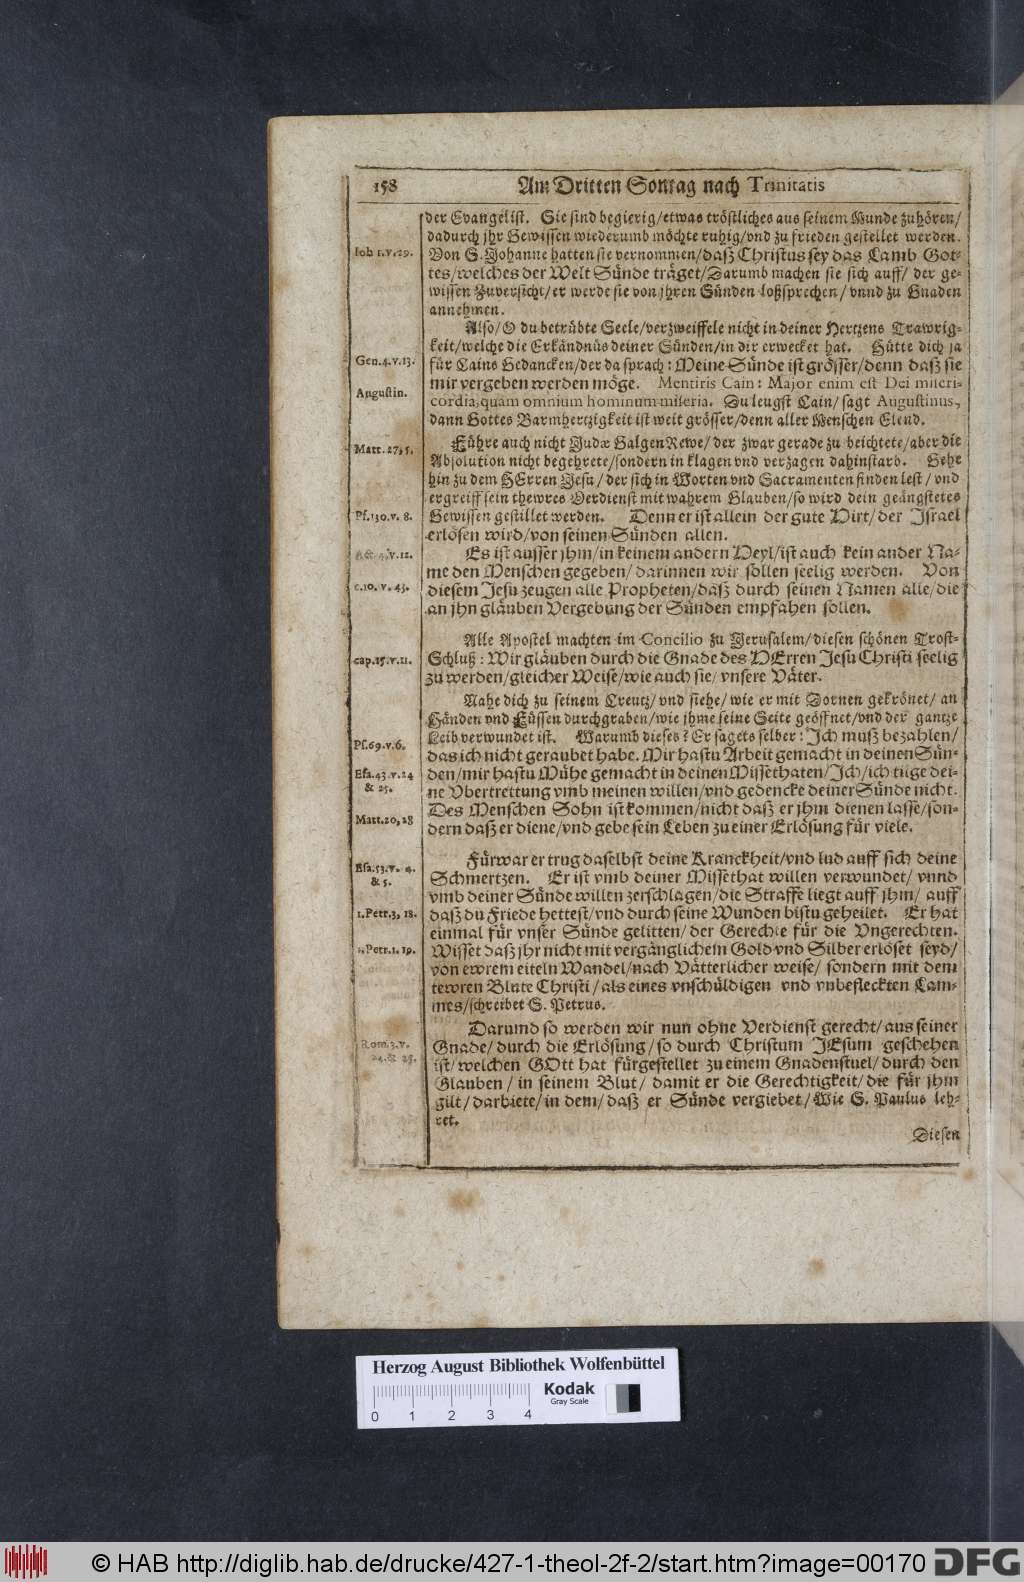 158 Am Dritten Sontag nach Trinitatis
der Evangelist. Sie sind begierig/etwas tröstliches aus seinem Munde zuhören/
dadurch jhr Gewissen wiederumb möchte ruhig/vnd zu frieden gestellet werden.
Ioh 1.v.29.
Von S. Johanne hatten sie vernommen/daß Christus sey das Lamb Got-
tes/welches der Welt Sünde träget/Darumb machen sie sich auff/ der ge-
wissen Zuversicht/er werde sie von jhren Sünden loßsprechen/vnnd zu Gnaden
annehmen.
Also/O du betrübte Seele/verzweiffele nicht in deiner Hertzens Trawrig-
keit/welche die Erkändnüs deiner Sünden/in dir erwecket hat. Hütte dich ja
Gen.4.v.13.
für Cains Gedancken/der da sprach: Meine Sünde ist grösser/denn daß sie
mir vergeben werden möge. Mentiris Cain: Major enim est Dei miseri-
Augustin.
cordia, quam omnium hominum miseria. Du leugst Cain/ sagt Augustinus,
dann Gottes Barmhertzigkeit ist weit grösser/denn aller Menschen Elend.
Matt.27,5.
Führe auch nicht Judæ Galgen Rewe/ der zwar gerade zu beichtete/aber die
Absolution nicht begehrete/sondern in klagen vnd verzagen dahinstarb. Gehe
hin zu dem HErren Jesu/ der sich in Worten vnd Sacramenten finden lest/ vnd
ergreiff sein thewres Verdienst mit wahrem Glauben/so wird dein geängstetes
Ps.130.v.8.
Gewissen gestillet werden. Denn er ist allein der gute Hirt/ der Israel
erlösen wird/von seinen Sünden allen.
Act. 4.v.12.
Es ist ausser jhm/in keinem andern Heyl/ist auch kein ander Na-
me den Menschen gegeben/ darinnen wir sollen seelig werden. Von
c.10.v.43.
diesem Jesu zeugen alle Propheten/daß durch seinen Namen alle/die
an jhn gläuben Vergebung der Sünden empfahen sollen.
Alle Apostel machten im Concilio zu Jerusalem/diesen schönen Trost-
cap.15.v.11.
Schluß: Wir gläuben durch die Gnade des HErren Jesu Christi seelig
zu werden/gleicher Weise/wie auch sie/ vnsere Väter.
Nahe dich zu seinem Creutz/vnd siehe/ wie er mit Dornen gekrönet/ an
Händen vnd Füssen durchgraben/wie jhme seine Seite geöffnet/vnd der gantze
Ps.69.v.6.
Leib verwundet ist. Warumb dieses? Er sagets selber: Ich muß bezahlen/
das ich nicht geraubet habe. Mir hastu Arbeit gemacht in deinen Sün-
Esa.43.v.24
& 25.
den/mir hastu Mühe gemacht in deinen Missethaten/Ich/ich tilge dei-
ne Vbertrettung vmb meinen willen/vnd gedencke deiner Sünde nicht.
Matt.20,28
Des Menschen Sohn ist kommen/nicht daß er jhm dienen lasse/son-
dern daß er diene/vnd gebe sein Leben zu einer Erlösung für viele.
Esa.53.v. 4.
& 5.
Fürwar er trug daselbst deine Kranckheit/vnd lud auff sich deine
Schmertzen. Er ist vmb deiner Missethat willen verwundet/ vnnd
vmb deiner Sünde willen zerschlagen/die Straffe liegt auff jhm/ auff
1.Petr.3, 18.
daß du Friede hettest/vnd durch seine Wunden bistu geheilet. Er hat
einmal für vnser Sünde gelitten/ der Gerechte für die Vngerechten.
1.Petr.1.19.
Wisset daß jhr nicht mit vergänglichem Gold vnd Silber erlöset seyd/
von ewrem eiteln Wandel/nach Vätterlicher weise/ sondern mit dem
tewren Blute Christi/als eines vnschüldigen vnd vnbefleckten Lam-
mes/schreibet S. Petrus.
Darumb so werden wir nun ohne Verdienst gerecht/aus seiner
Rom.3.v.
24.& 25.
Gnade/ durch die Erlösung/so durch Christum JEsum geschehen
ist/welchen GOtt hat fürgestellet zu einem Gnadenstuel/durch den
Glauben/ in seinem Blut/ damit er die Gerechtigkeit/die für jhm
gilt/darbiete/in dem/daß er Sünde vergiebet/Wie S. Paulus leh-
ret.
Diesen
Herzog August Bibliothek Wolfenbüttel
Kodak
Gray Scale
0 1 2 3 4
© HAB http://diglib.hab.de/drucke/427-1-theol-2f-2/start.htm?image=00170 DFG